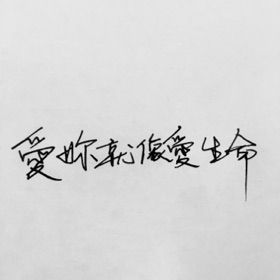 愛妳就像愛生命